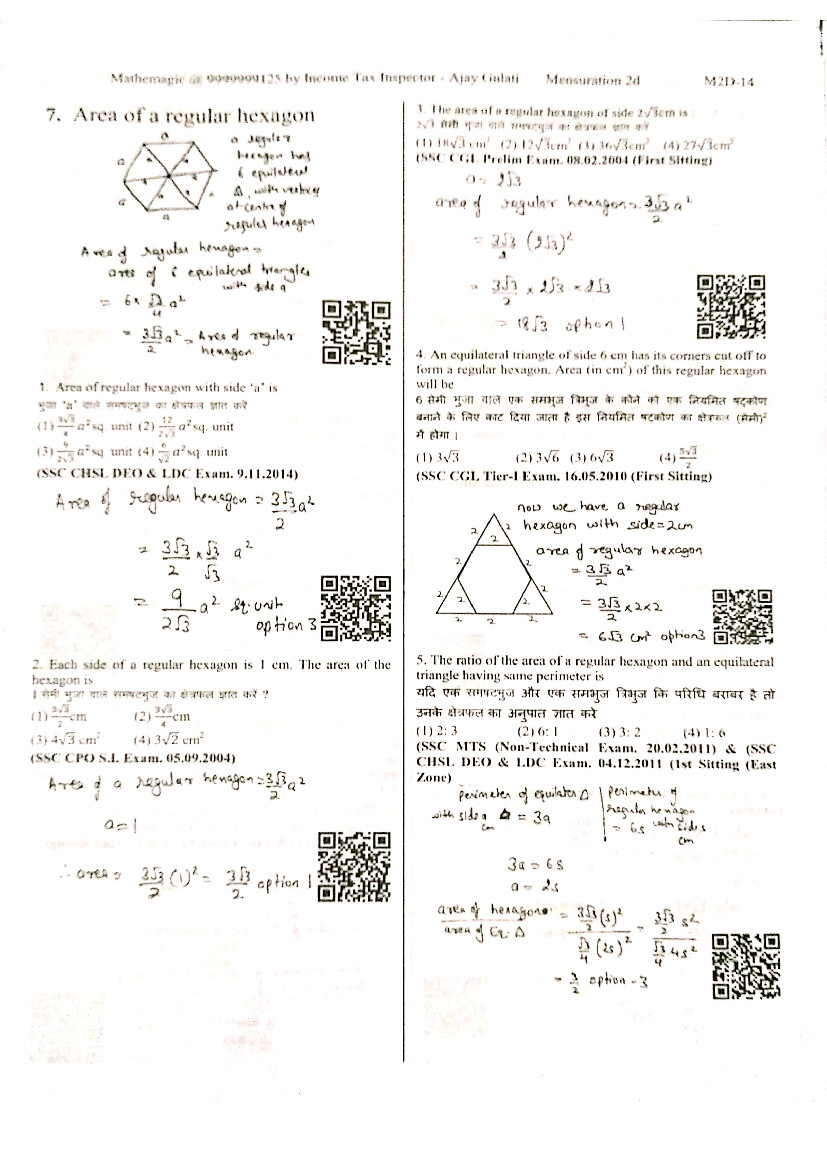 Mathemagic @ 9999999125 by Income Tax Inspector - Ajay Gulati Mensuration 2d M2D-14
7. Area of a regular hexagon
a
a a
a a
a
a regular
hexagon has
6 equilateral
Δ, with vertex
at centre of
regular hexagon
Area of regular hexagon =
area of 6 equilateral triangles
with side a
= 6 × √3/4 a²
= 3√3/2 a² = Area of regular
hexagon
1. Area of regular hexagon with side 'a' is
भुजा 'a' वाले समषटभुज का क्षेत्रफल ज्ञात करें
(1) 3√3/4 a² sq. unit (2) 12/2√3 a² sq. unit
(3) 9/2√3 a² sq. unit (4) 6/√2 a² sq. unit
(SSC CHSL DEO & LDC Exam. 9.11.2014)
Area of regular hexagon = 3√3/2 a²
= 3√3/2 × √3/√3 a²
= 9/2√3 a² sq. unit
option 3
2. Each side of a regular hexagon is 1 cm. The area of the
hexagon is
1 सेमी भुजा वाले समषटभुज का क्षेत्रफल ज्ञात करें ?
(1) 3√3/2 cm (2) 3√3/4 cm
(3) 4√3 cm² (4) 3√2 cm²
(SSC CPO S.I. Exam. 05.09.2004)
Area of a regular hexagon = 3√3/2 a²
a = 1
∴ area = 3√3/2 (1)² = 3√3/2 option 1
3. The area of a regular hexagon of side 2√3cm is
2√3 सेमी भुजा वाले समषटभुज का क्षेत्रफल ज्ञात करें
(1) 18√3 cm² (2) 12√3cm² (3) 36√3cm² (4) 27√3cm²
(SSC CGL Prelim Exam. 08.02.2004 (First Sitting)
a = 2√3
area of regular hexagon = 3√3/2 a²
= 3√3/2 (2√3)²
= 3√3/2 × 2√3 × 2√3
= 18√3 option 1
4. An equilateral triangle of side 6 cm has its corners cut off to
form a regular hexagon. Area (in cm²) of this regular hexagon
will be
6 सेमी भुजा वाले एक समभुज त्रिभुज के कोने को एक नियमित षट्कोण
बनाने के लिए काट दिया जाता है इस नियमित षट्कोण का क्षेत्रफल (सेमी)²
में होगा ।
(1) 3√3 (2) 3√6 (3) 6√3 (4) 5√3/2
(SSC CGL Tier-I Exam. 16.05.2010 (First Sitting)
now we have a regular
hexagon with side = 2cm
2 2
2
2 2
2 2 2 2
2 2 2
area of regular hexagon
= 3√3/2 a²
= 3√3/2 × 2 × 2
= 6√3 cm² option 3
5. The ratio of the area of a regular hexagon and an equilateral
triangle having same perimeter is
यदि एक समषटभुज और एक समभुज त्रिभुज कि परिधि बराबर है तो
उनके क्षेत्रफल का अनुपात ज्ञात करे
(1) 2: 3 (2) 6: 1 (3) 3: 2 (4) 1: 6
(SSC MTS (Non-Technical Exam. 20.02.2011) & (SSC
CHSL DEO & LDC Exam. 04.12.2011 (1st Sitting (East
Zone)
perimeter of equilater Δ
with side a cm Δ = 3a
perimeter of
regular hexagon
= 6s with side s
cm
3a = 6s
a = 2s
area of hexagon/area of Eq. Δ = 3√3/2 (s)² / √3/4 (2s)² = 3√3/2 s² / √3/4 4s²
= 3/2 option - 3